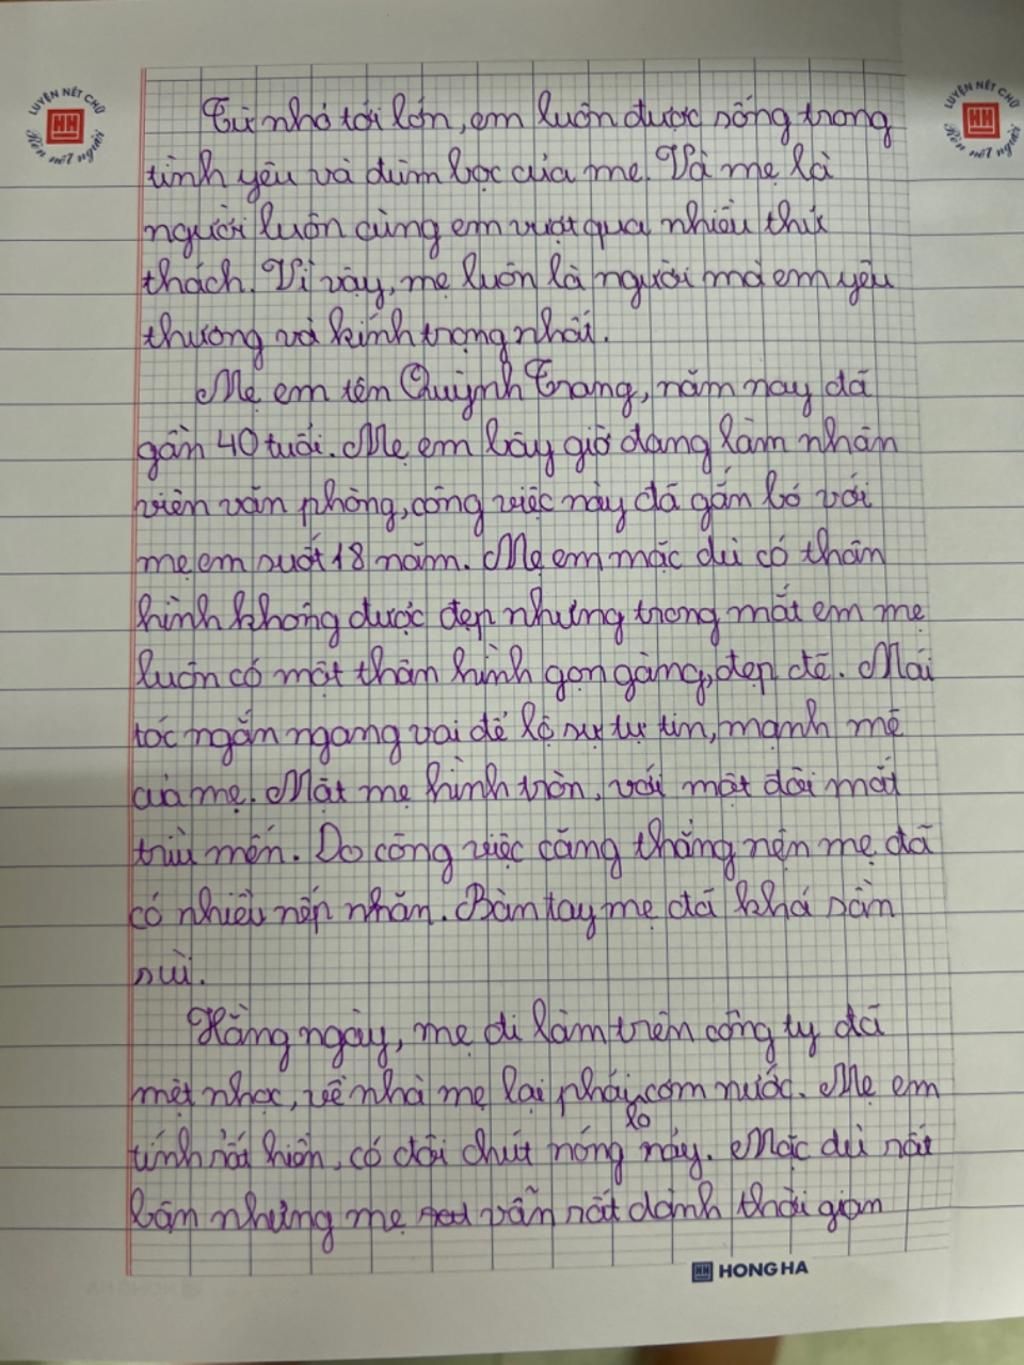 LUYỆN NÉT CHỮ
HH
Rèn nết người
LUYỆN NÉT CHỮ
HH
Rèn nết người
Từ nhỏ tới lớn, em luôn được sống trong
tình yêu và đùm bọc của mẹ. Và mẹ là
người luôn cùng em vượt qua nhiều thử
thách. Vì vậy, mẹ luôn là người mà em yêu
thương và kính trọng nhất.
Mẹ em tên Quỳnh Trang, năm nay đã
gần 40 tuổi. Mẹ em bây giờ đang làm nhân
viên văn phòng, công việc này đã gắn bó với
mẹ em suốt 18 năm. Mẹ em mặc dù có thân
hình không được đẹp nhưng trong mắt em mẹ
luôn có một thân hình gọn gàng, đẹp đẽ. Mái
tóc ngắn ngang vai để lộ sự tự tin, mạnh mẽ
của mẹ. Mặt mẹ hình tròn, với một đôi mắt
trìu mến. Do công việc căng thẳng nên mẹ đã
có nhiều nếp nhăn. Bàn tay mẹ đã khá sần
sùi.
Hằng ngày, mẹ đi làm trên công ty đã
mệt nhọc, về nhà mẹ lại phải lo cơm nước. Mẹ em
tính rất hiền, có đôi chút nóng nảy. Mặc dù rất
bận nhưng mẹ vẫn rất dành thời gian
HH HONG HA